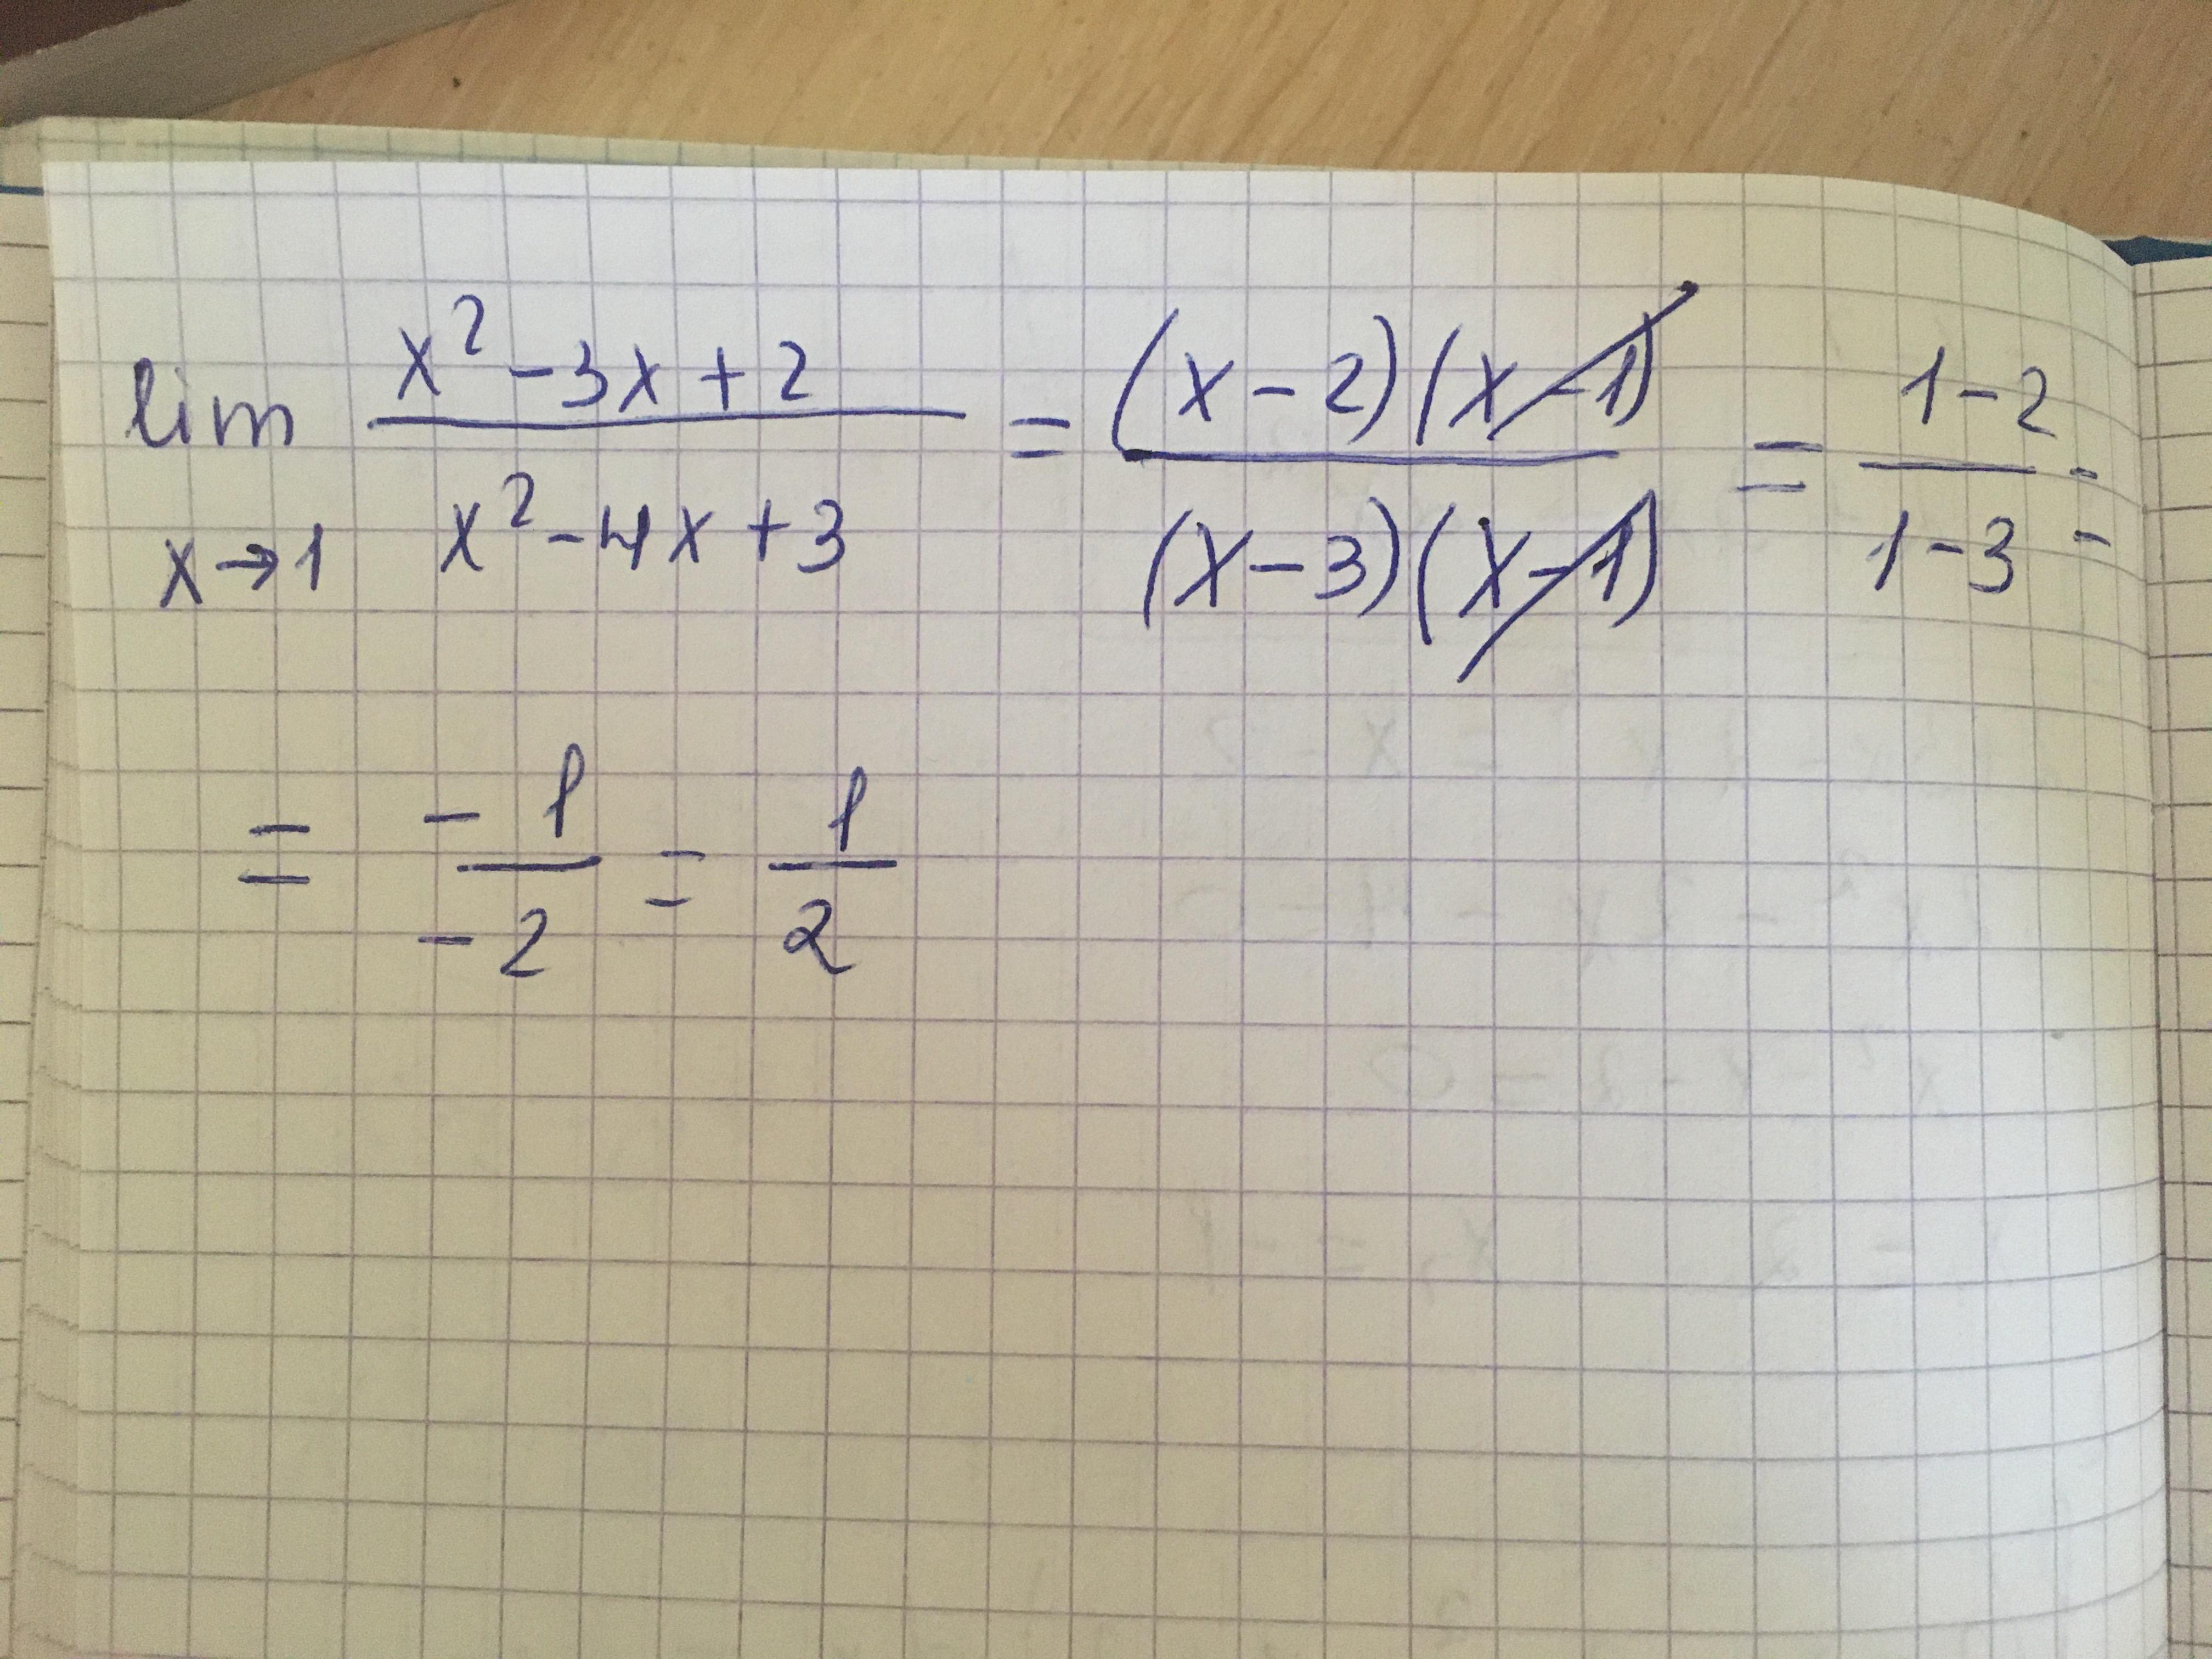 lim x→1 (x² - 3x + 2)/(x² - 4x + 3) = ((x - 2)(x - 1))/((x - 3)(x - 1)) = (1 - 2)/(1 - 3) =
= (-1)/(-2) = 1/2